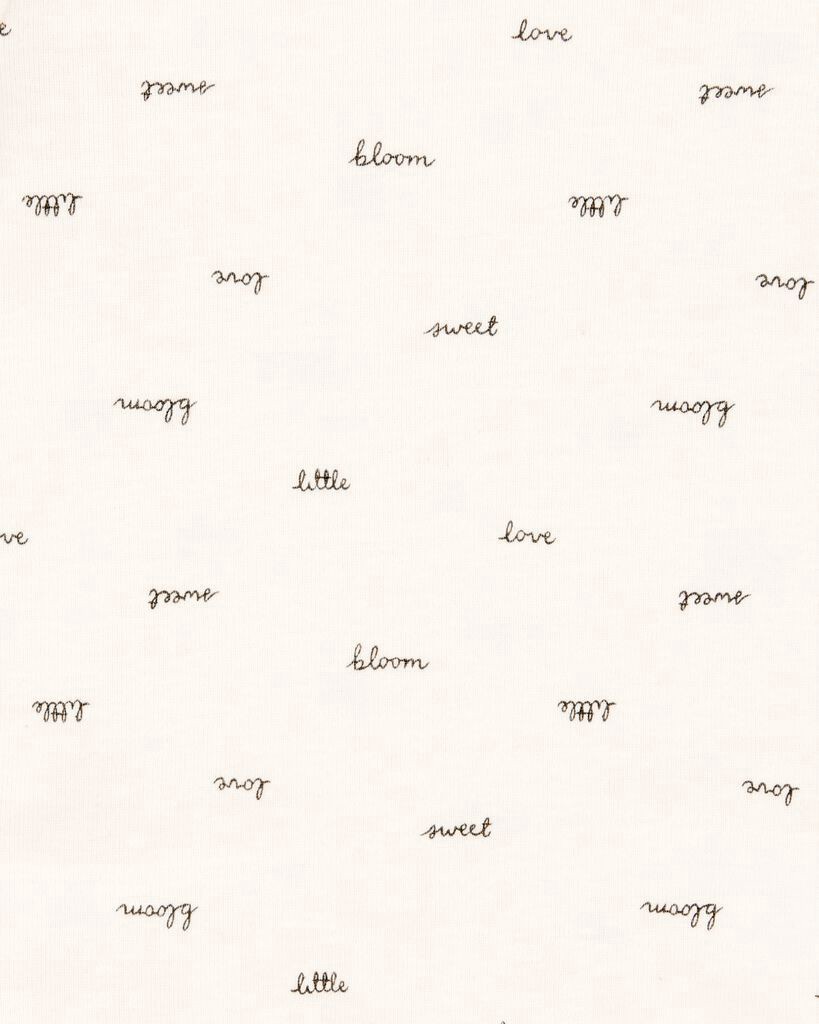 love
sweet
sweet
bloom
little
little
love
love
sweet
bloom
bloom
little
ve
love
sweet
sweet
bloom
little
little
love
love
sweet
bloom
bloom
little